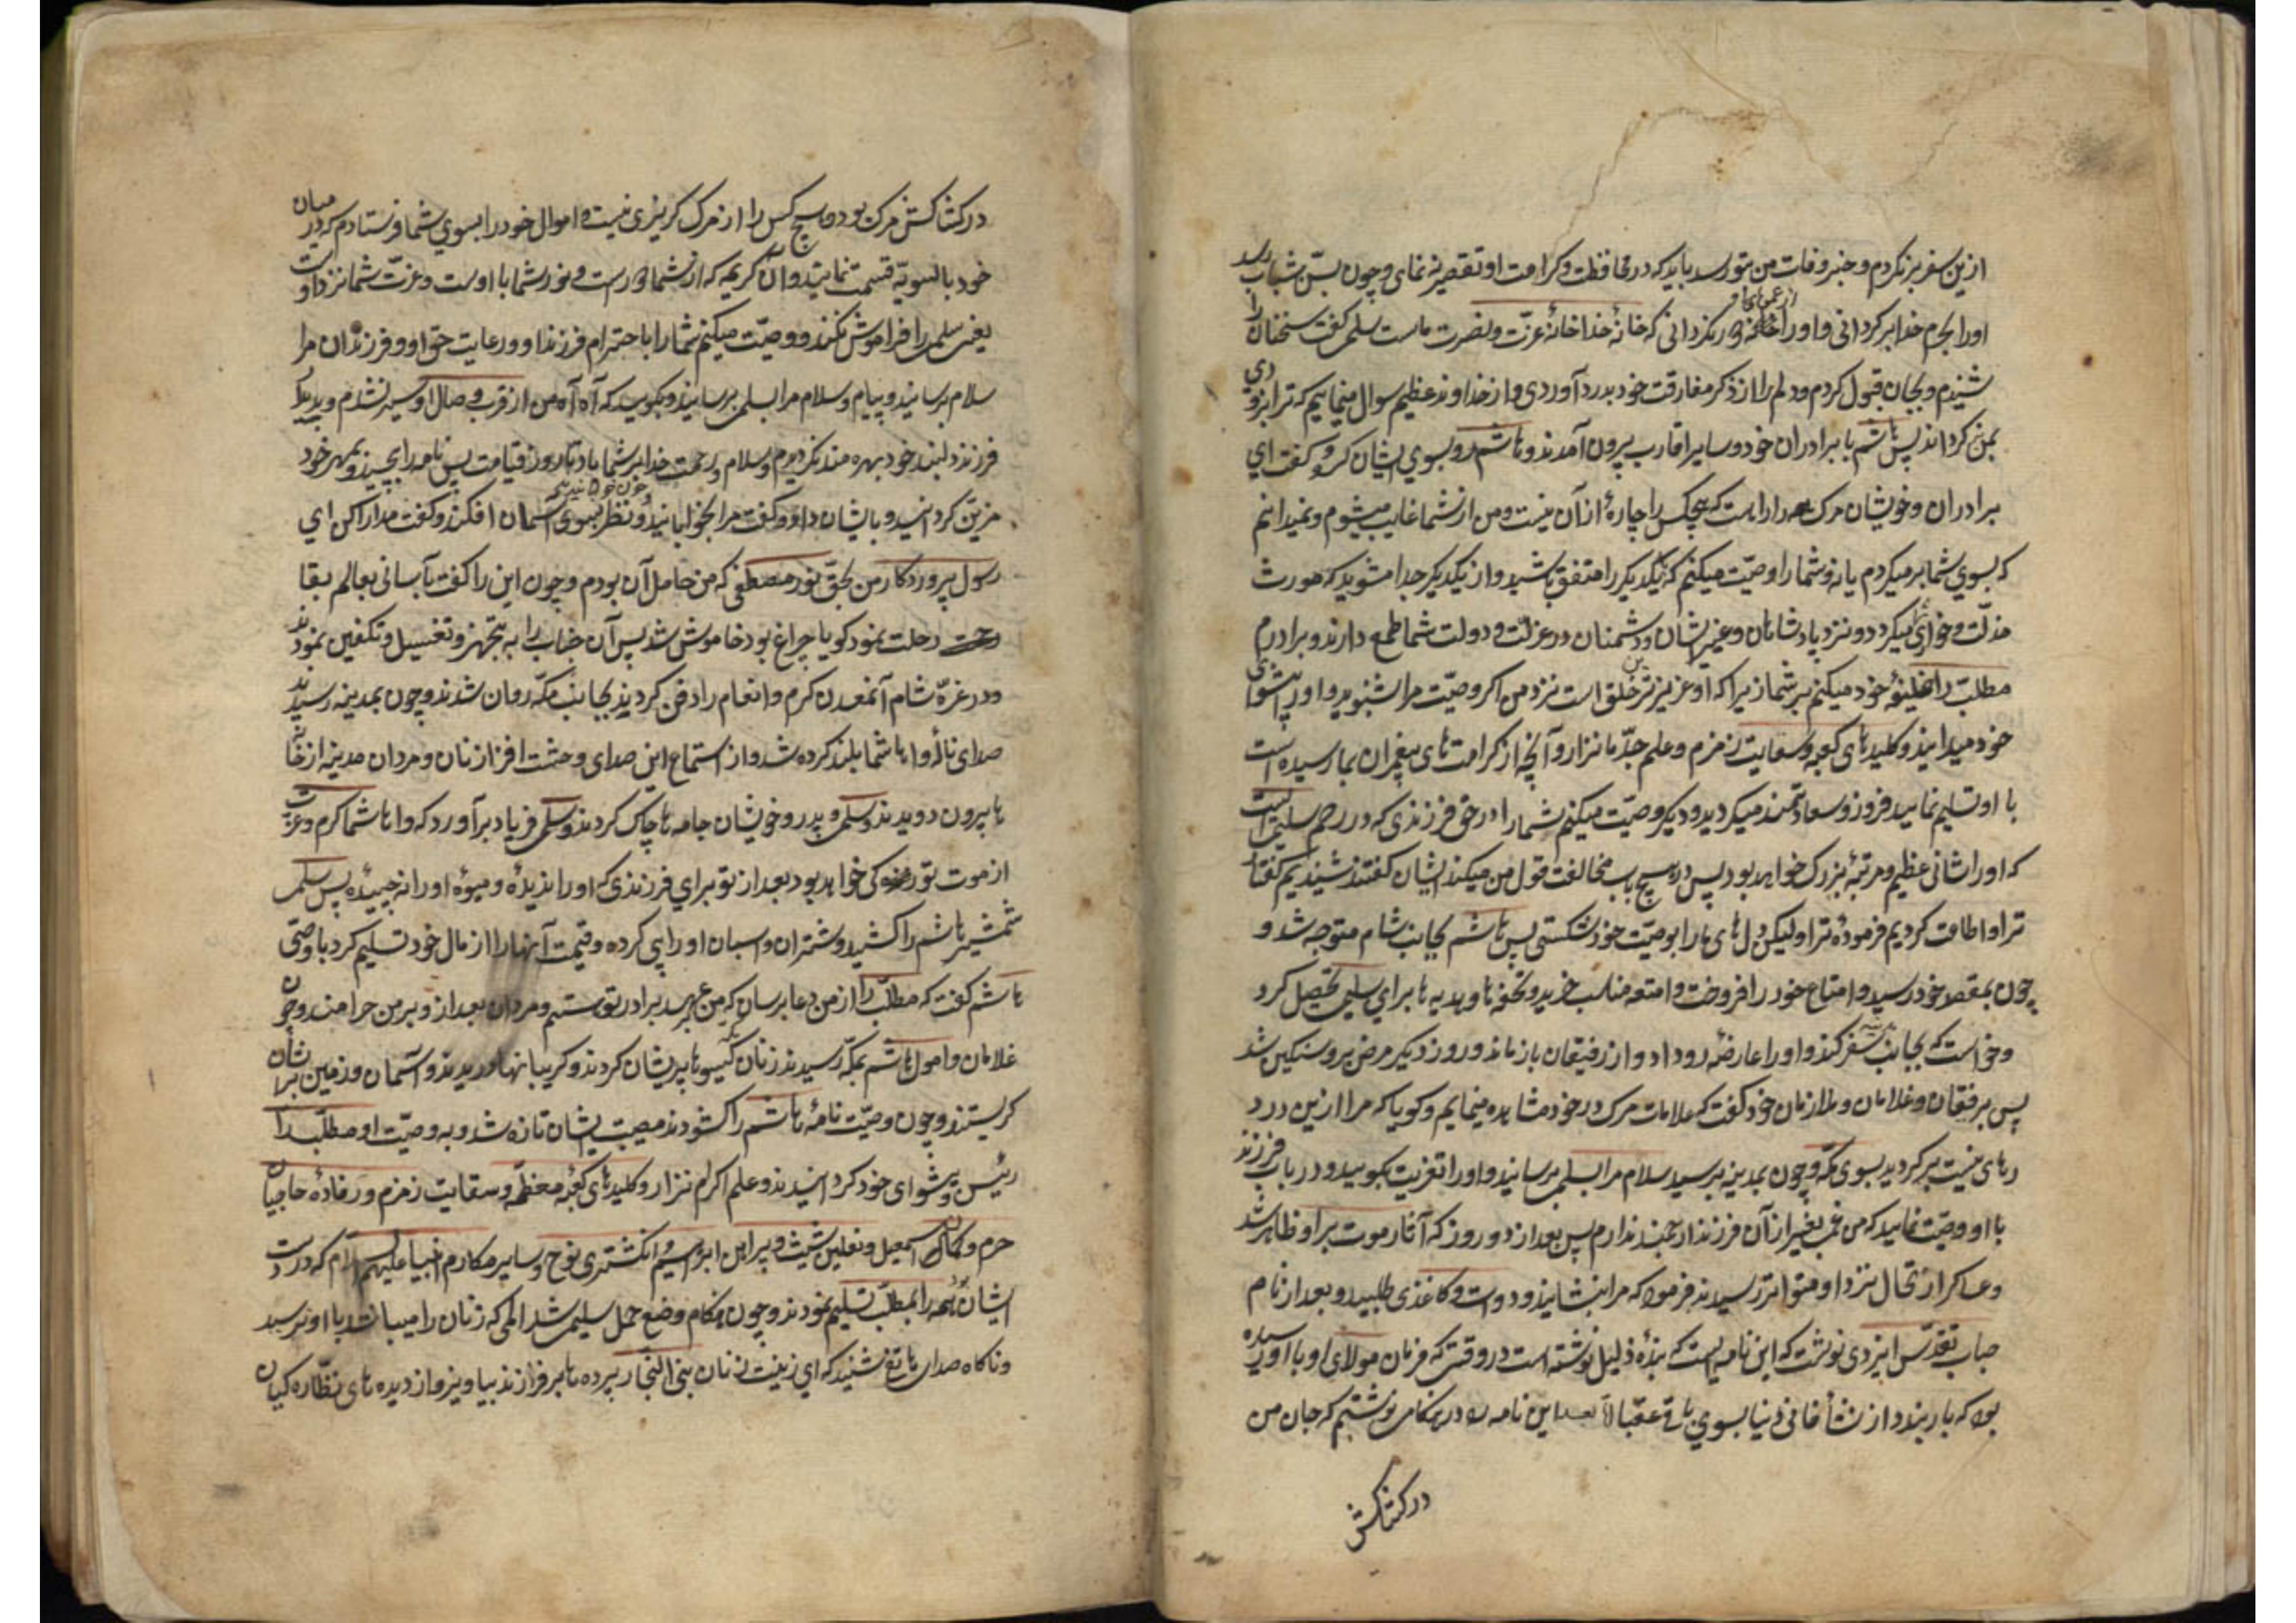 ازین سفر برنکردم و خبر وفات من بتو رسد باید که در محافظت و کرامت او تقصیر ننمای و چون بسنّ شباب رسد
اورا بحرم خدا برکردانی و اورا از عموهای او دور نکردانی که خانهٔ خدا خانهٔ عزّت و نصرت ماست سلمی کفت سخنان ترا
شنیدم و بجان قبول کردم و دلم را از ذکر مفارقت خود بدرد آوردی و از خداوند عظیم سوال مینمایم که ترا بزودی
بمن کرداند پس هاشم با برادران خود و سایر اقارب بیرون آمدند و هاشم رو بسوي ایشان کرد و کفت اي
برادران و خویشان مرک راهیست که هیچکس را چارهٔ از آن نیست و من از شما غایب میشوم و نمیدانم
که بسوي شما برمیکردم یا نه و شما را وصیّت میکنم که یکدیکر را متفق باشید و از یکدیکر جدا مشوید که مورث
مذلّت و خواری میکردد و نزد پادشاهان و غیر ایشان و دشمنان در عزّت و دولت شما طمع دارند و برادرم
مطلّب را خلیفهٔ خود میکنم بر شما زیرا که او عزیزترین خلق است نزد من اکر وصیّت مرا بشنوید و اورا پیشوای
خود میدانید و کلیدهای کعبه و سقایت زمزم و علم جدّ ما نزار و آنچه از کرامت های پیغمبران بما رسیده است
با او تسلیم نمایید فیروز و سعادتمند میکردید و دیکر وصیّت میکنم شما را در حق فرزندی که در رحم سلمی است
که اورا شانی عظیم و مرتبهٔ بزرک خواهد بود پس در هیچ باب مخالفت قول من میکنید ایشان کفتند شنیدیم کفتار
ترا و اطاعت کردیم فرمودهٔ ترا و لیکن دل های ما را بوصیّت خود شکستی پس هاشم بجانب شام متوجه شد و
چون بمقصد خود رسید و امتاع خود را فروخت و امتعه مناسب خرید و تحفه ها و هدیه ها برای سلمی تحصیل کرد
و خواست که بجانب مدینه سفر کند و اورا عارضهٔ رو داد و از رفیقان باز ماند و روز دیکر مرض برو سنکین شد
پس برفیقان و غلامان و ملازمان خود کفت که علامات مرک در خود مشاهده مینمایم و کویا که مرا ازین درد
رهای نیست برکردید بسوی مکّه و چون بمدینه برسید سلام مرا بسلمی برسانید و اورا تعزیت بکویید و در باب فرزند
با او وصیّت نمایید که من غمی بغیر از آن فرزند ارجمند ندارم پس بعد از دو روز که آثار موت بر او ظاهر شد
و عساکر ارتحال نزد او متواتر رسیدند فرمود که مرا بنشانید و دوات و کاغذی طلبید و بعد از نام
جناب تقدّس ایزدی نوشت که این نامه ایست که بندهٔ ذلیل نوشته است در وقتی که فرمان مولای او با او رسیده
بود که بار بندد از نشأ فانی دنیا بسوي باقی عقبا امّا بعد این نامه را در هنکامی نوشتم که جان من
در کشاکش
در کشاکش مرک بود و هیچ کس را از مرک کریزی نیست و اموال خود را بسوي شما فرستادم که در میان
خود بالسویّه قسمت نمایید و آن کریمه که از شما دور است و نور شما با اوست و عزّت شما نزد او است
یعنی سلمی را فراموش نکنید و وصیّت میکنم شما را باحترام فرزند او و رعایت حق او و فرزندان مرا
سلام برسانید و پیام و سلام مرا بسلمی برسانید و بکویید که آه آه من از قرب و وصال او سیر نشدم و بدیدار
فرزند دلبند خود بهره مند نکردیدم و سلام و رحمت خدا بر شما باد تا روز قیامت پس نامه را پیچید و بمهر خود
مزیّن کردانید و بایشان داد و کفت مرا بخوابانید و چون خوابانیدند نظر بسوي آسمان افکند و کفت مدارا کن اي
رسول پروردکار من بحقّ نور مصطفی که من حامل آن بودم و چون این را کفت بآسانی بعالم بقا
رحلت نمود کویا چراغی بود خاموش شد پس آن جناب را به تجهیز و تغسیل و تکفین نمودند
و در غزّهٔ شام آنمعدن کرم و انعام را دفن کردند و بجانب مکّه روان شدند و چون بمدینه رسیدند
صدای نالهٔ وا هاشما بلند کرده شد و از استماع این صدای وحشت افزا زنان و مردان مدینه از خانه
ها بیرون دویدند و سلمی و پدر و خویشان جامه ها چاک کردند و سلمی فریاد برآورد که وا هاشما کرم و عزّت
از موت تو مرد که خواهد بود بعد از تو برای فرزندی که اورا ندیدهٔ و میوهٔ اورا نچیدهٔ پس سلمی
شمشیر هاشم را کشید و شتران و اسبان اورا پی کرده و قیمت آنها را از مال خود تسلیم کرد با وصی
هاشم کفت که مطلّب را از من دعا برسان که من بر عهد برادر تو هستم و مردان بعد از و بر من حرامند و چون
غلامان و امول هاشم بمکّه رسیدند زنان مکّه کیسوها پریشان کردند و کریبانها دریدند و آسمان و زمین بر ایشان
کریستند و چون وصیّت نامهٔ هاشم را کشودند مصیبت ایشان تازه شد و به وصیّت او مطلّب را
رئیس و پیشوای خود کردانیدند و علم اکرام نزار و کلیدهای کعبهٔ معظّمه و سقایت زمزم و رفادهٔ حاجیان
حرم و کمان اسمعیل و نعلین شیث و پیراهن ابراهیم و انکشتری نوح و سایر مکارم انبیا علیهم السلام که در دست
ایشان بود همه را بمطلّب تسلیم نمودند و چون هنکام وضع حمل سلمی شد المی که زنان را میباشد با او نرسید
و ناکاه صدای هاتفی شنید که اي زینت زنان بنی النجّار پرده ها بر فرازند بیاویز و از دیده های نظّاره کیان